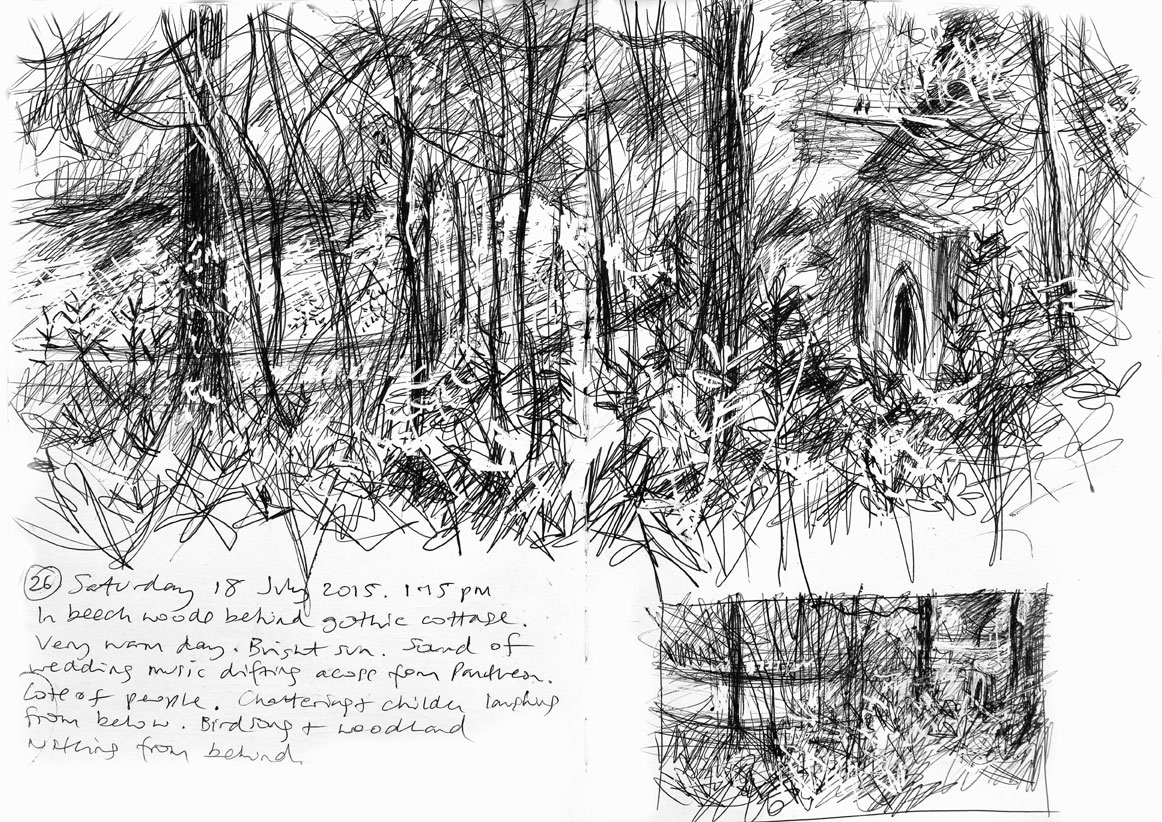 26 Saturday 18 July 2015. 1.15 pm
In beech woods behind gothic cottage.
Very warm day. Bright sun. Sound of
wedding music drifting across from Pantheon.
Lots of people. Chattering + children laughing
from below. Birdsong + woodland
from behind.